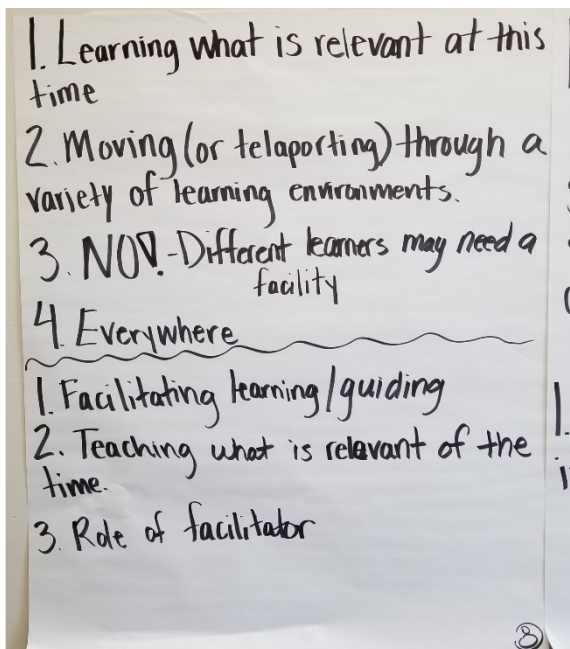 1. Learning what is relevant at this
time
2. Moving (or telaporting) through a
variety of learning environments.
3. NO!-Different learners may need a
facility
4. Everywhere
1. Facilitating learning/guiding
2. Teaching what is relevant of the
time.
3. Role of facilitator
8